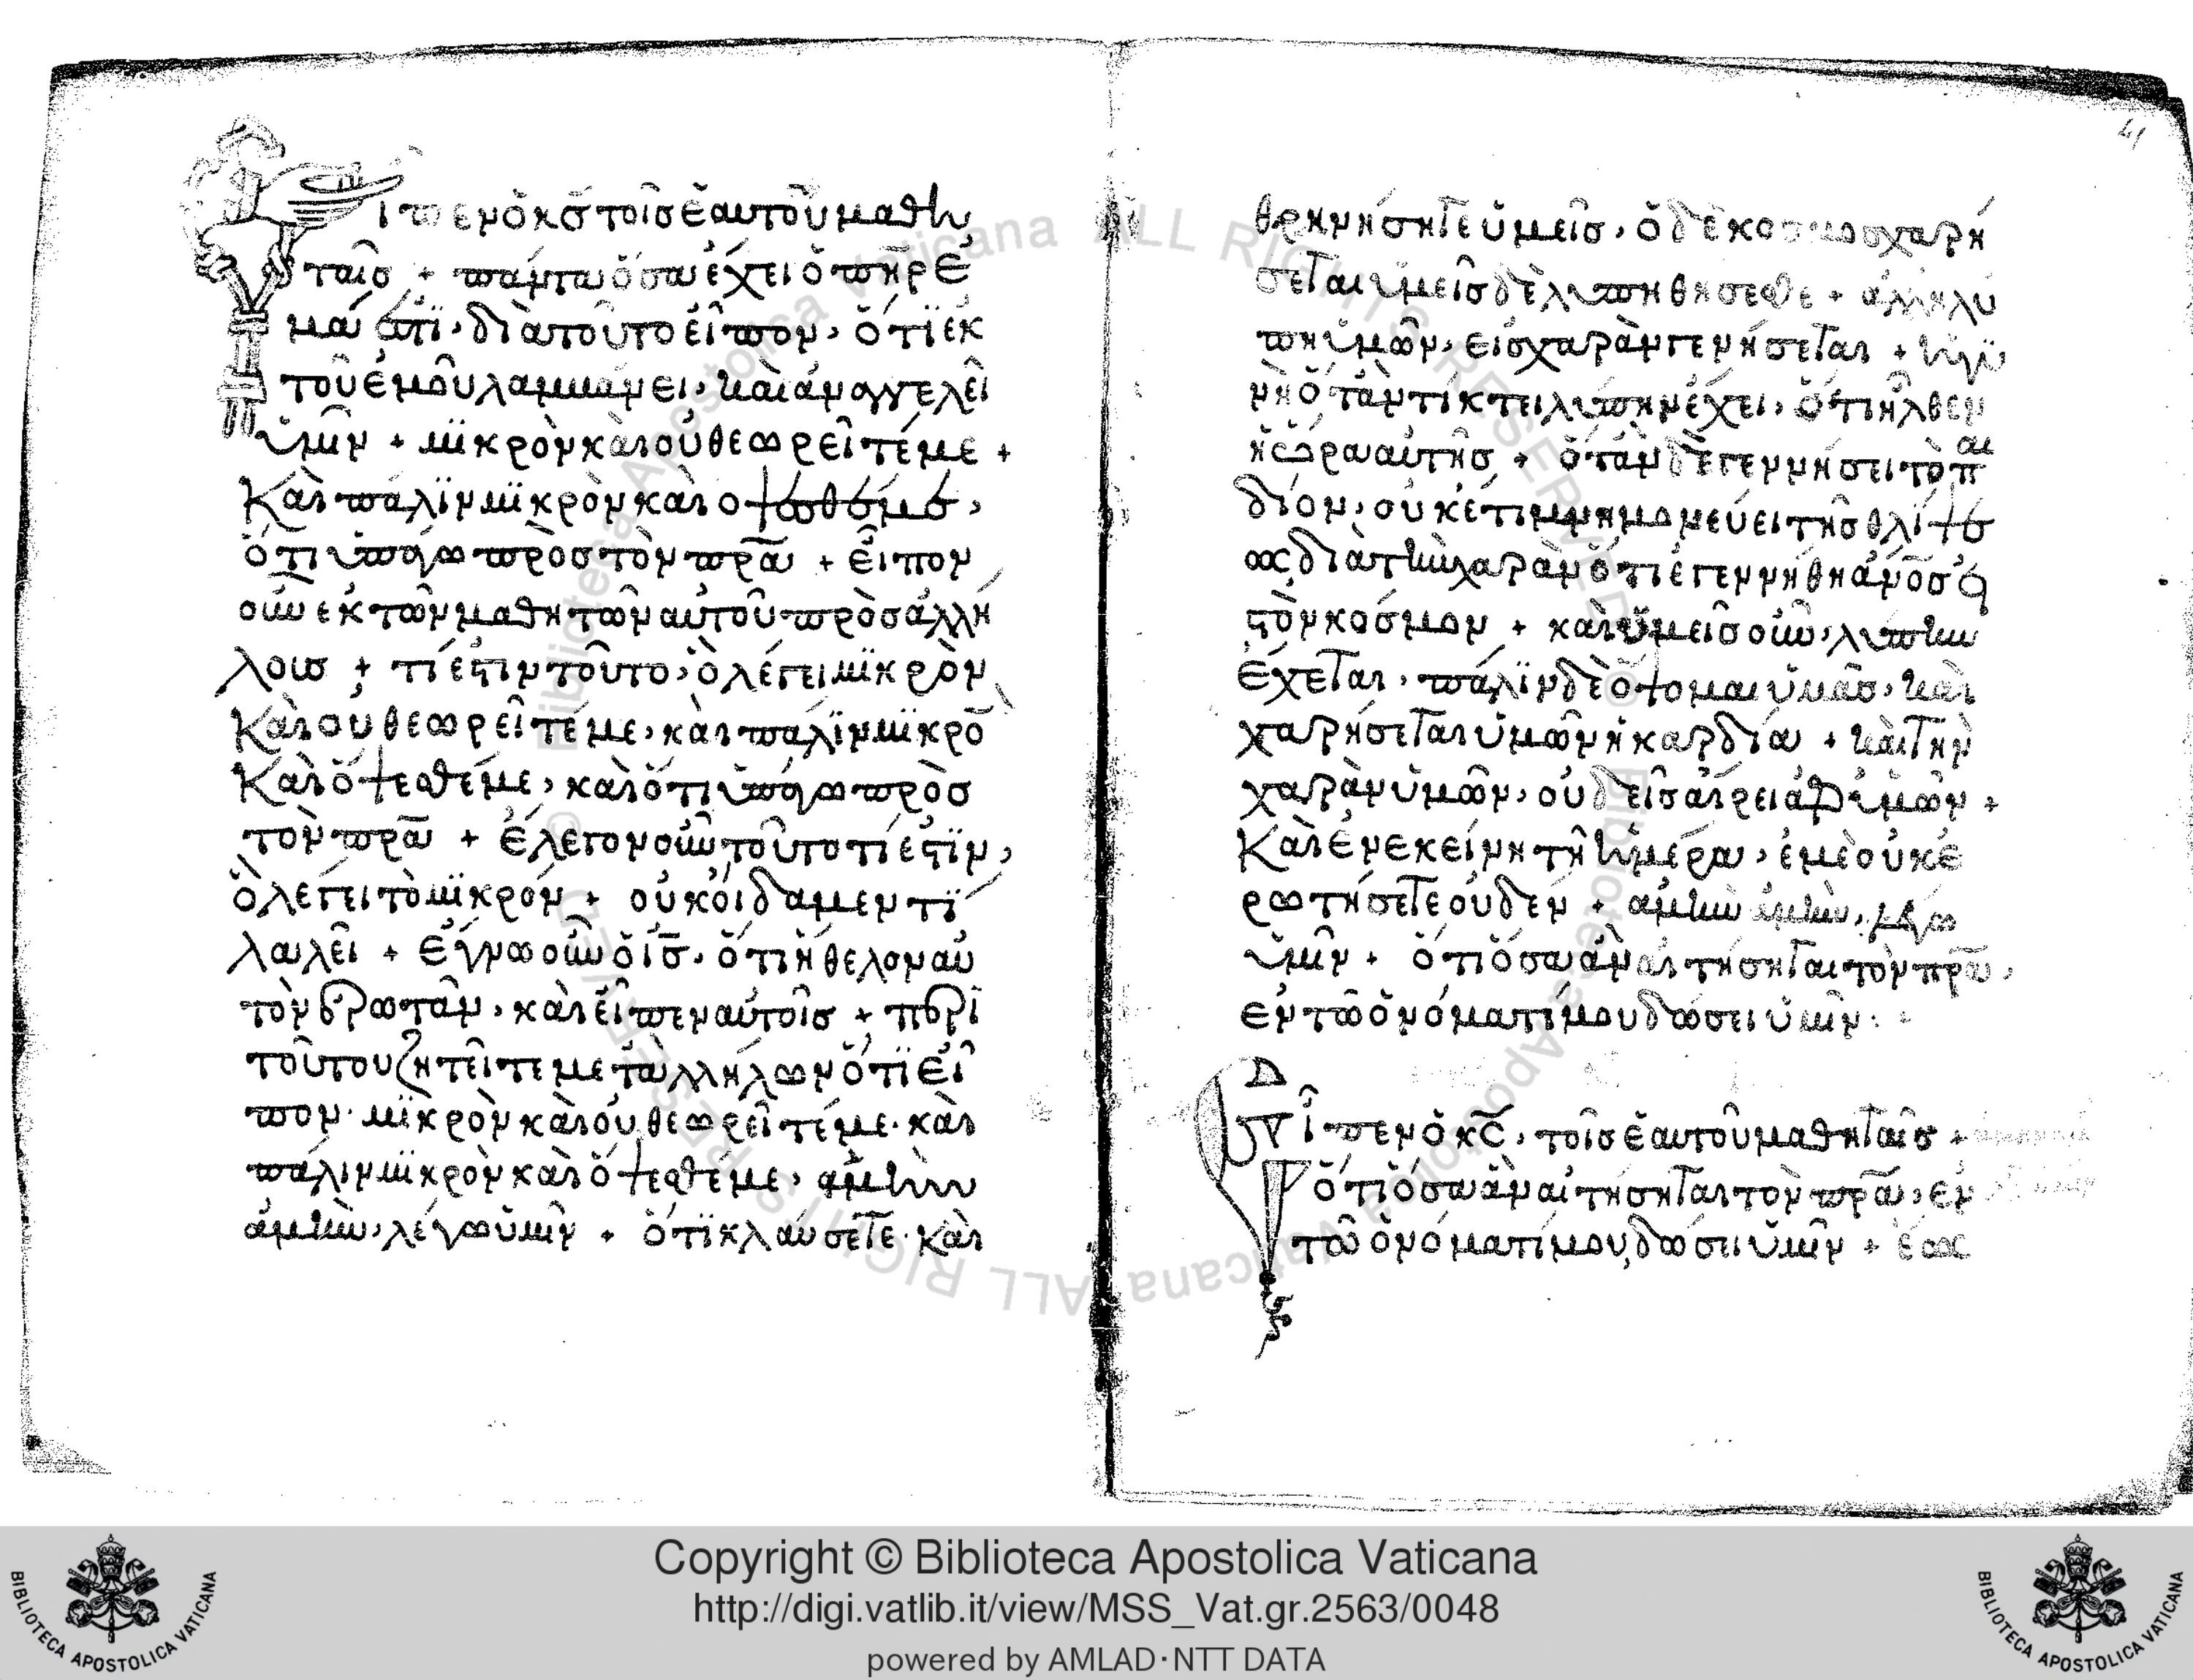 ιπεν ὁ κσ τοῖσ ἑαυτοῦ μαθη
ταῖσ + πάντα ὅσα ἔχει ὁ πηρ ἐ
μά ἐστϊ, διατοῦτο εἶπον, ὅτϊ ἐκ
τοῦ ἐμοῦ λαμμάνει, καὶ ἀναγγελεῖ
ὑμῖν + μϊκρὸν καὶ οὐ θεωρεῖτέ με +
Καὶ πάλϊν μϊκρὸν καὶ οψεσθέ με,
ὅτι ὑπάγω πρὸσ τὸν πρᾱ + εἶπον
οὖν ἐκ τῶν μαθητῶν αὐτοῦ πρὸσ ἀλλή
λουσ + τί ἐστιν τοῦτο, ὃ λέγει μϊκρὸν
Καὶ οὐ θεωρεῖτέ με, καὶ πάλϊν μϊκρο̄
Καὶ ὄψεσθέ με, καὶ ὅτι ὑπάγω πρὸσ
τὸν πρᾱ + ἔλεγον οὖν τοῦτο τί ἐστϊν,
ὃ λέγει τὸ μϊκρόν + οὐκ οἴδαμεν τϊ
λαλεῖ + ἔγνω οὖν ὁ ῑσ̄, ὅτι ἤθελον αὐ
τὸν ἐρωτᾶν, καὶ εἶπεν αὐτοῖσ + περὶ
τούτου ζητεῖτε μετ ἀλλήλων ὅτϊ εἶ
πον· μϊκρὸν καὶ οὐ θεωρεῖτέ με· καὶ
πάλιν μϊκρὸν καὶ ὄψεσθέ με, ἀμὴν
ἀμὴν, λέγω ὑμῖν + ὅτϊ κλαύσετε· καὶ
41
θρηνήσητε ὑμεῖσ, ὁ δὲ κόσμοσ χαρή
σεται ὑμεῖσ δὲ λυπηθήσεσθε + ἀλλη λύ
πη ὑμῶν, εἰσ χαρὰν γενήσεται + ἡ γϋ
νὴ ὅταν τίκτει λύπην ἔχει, ὅτι ἦλθεν
ἡ ὥρα αὐτῆσ + ὅταν δὲ γεννήσει τὸ παι
δίον, οὐκέτι μνημονεύει τῆσ θλίψε
ωσ διὰ τὴν χαρὰν ὅτι ἐγεννήθη ἄνο̄σ εἰσ
τὸν κόσμον + καὶ ὑμεῖσ οὖν, λύπην
ἔχεται, πάλϊν δὲ ὄψομαι ὑμᾶσ, καὶ
χαρήσεται ὑμῶν ἡ καρδία + καὶ τὴν
χαρὰν ὑμῶν, οὐδεὶσ αἴρει ἀφ ὑμῶν +
Καὶ ἐν ἐκείνη τῆ ἡμέρα, ἐμὲ οὐκ ἐ
ρωτήσετε οὐδέν + ἀμὴν ἀμὴν, λέγω
ὑμῖν + ὅτι ὅσα ἂν αἰτήσηται τὸν πρᾱ,
ἐν τῶ ὀνόματί μου δώσει ὑμῖν
Δ
εἶπεν ὁ κσ̄, τοῖσ ἑαυτοῦ μαθηταῖσ +
ὅτι ὅσα ἂν αἰτήσηται τὸν πρᾱ, ἐν
τῶ ὀνόματί μου, δώσει ὑμῖν + ἕωσ
Copyright © Biblioteca Apostolica Vaticana
http://digi.vatlib.it/view/MSS_Vat.gr.2563/0048
powered by AMLAD·NTT DATA
BIBLIOTECA APOSTOLICA VATICANA
BIBLIOTECA APOSTOLICA VATICANA